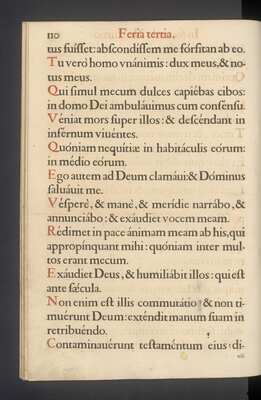 110 Feria tertia.
tus fuisset: abscondissem me fórsitan ab eo.
Tu verò homo vnánimis: dux meus, & no-
tus meus.
Qui simul mecum dulces capiébas cibos:
in domo Dei ambulávimus cum consẽsu.
Véniat mors super illos: & descéndant in
infernum viuéntes.
Quóniam nequítiæ in habitáculis eórum:
in médio eórum.
Ego autem ad Deum clamáui: & Dóminus
saluáuit me.
Véspere, & manè, & merídie narrábo, &
annunciábo: & exáudiet vocem meam.
Rédimet in pace ánimam meam ab his, qui
appropínquant mihi: quóniam inter mul-
tos erant mecum.
Exáudiet Deus, & humiliábit illos: qui est
ante sǽcula.
Non enim est illis commutátio: & non ti-
muérunt Deum: exténdit manum suam in
retribuéndo.
Contaminauérunt testaméntum eius: di-